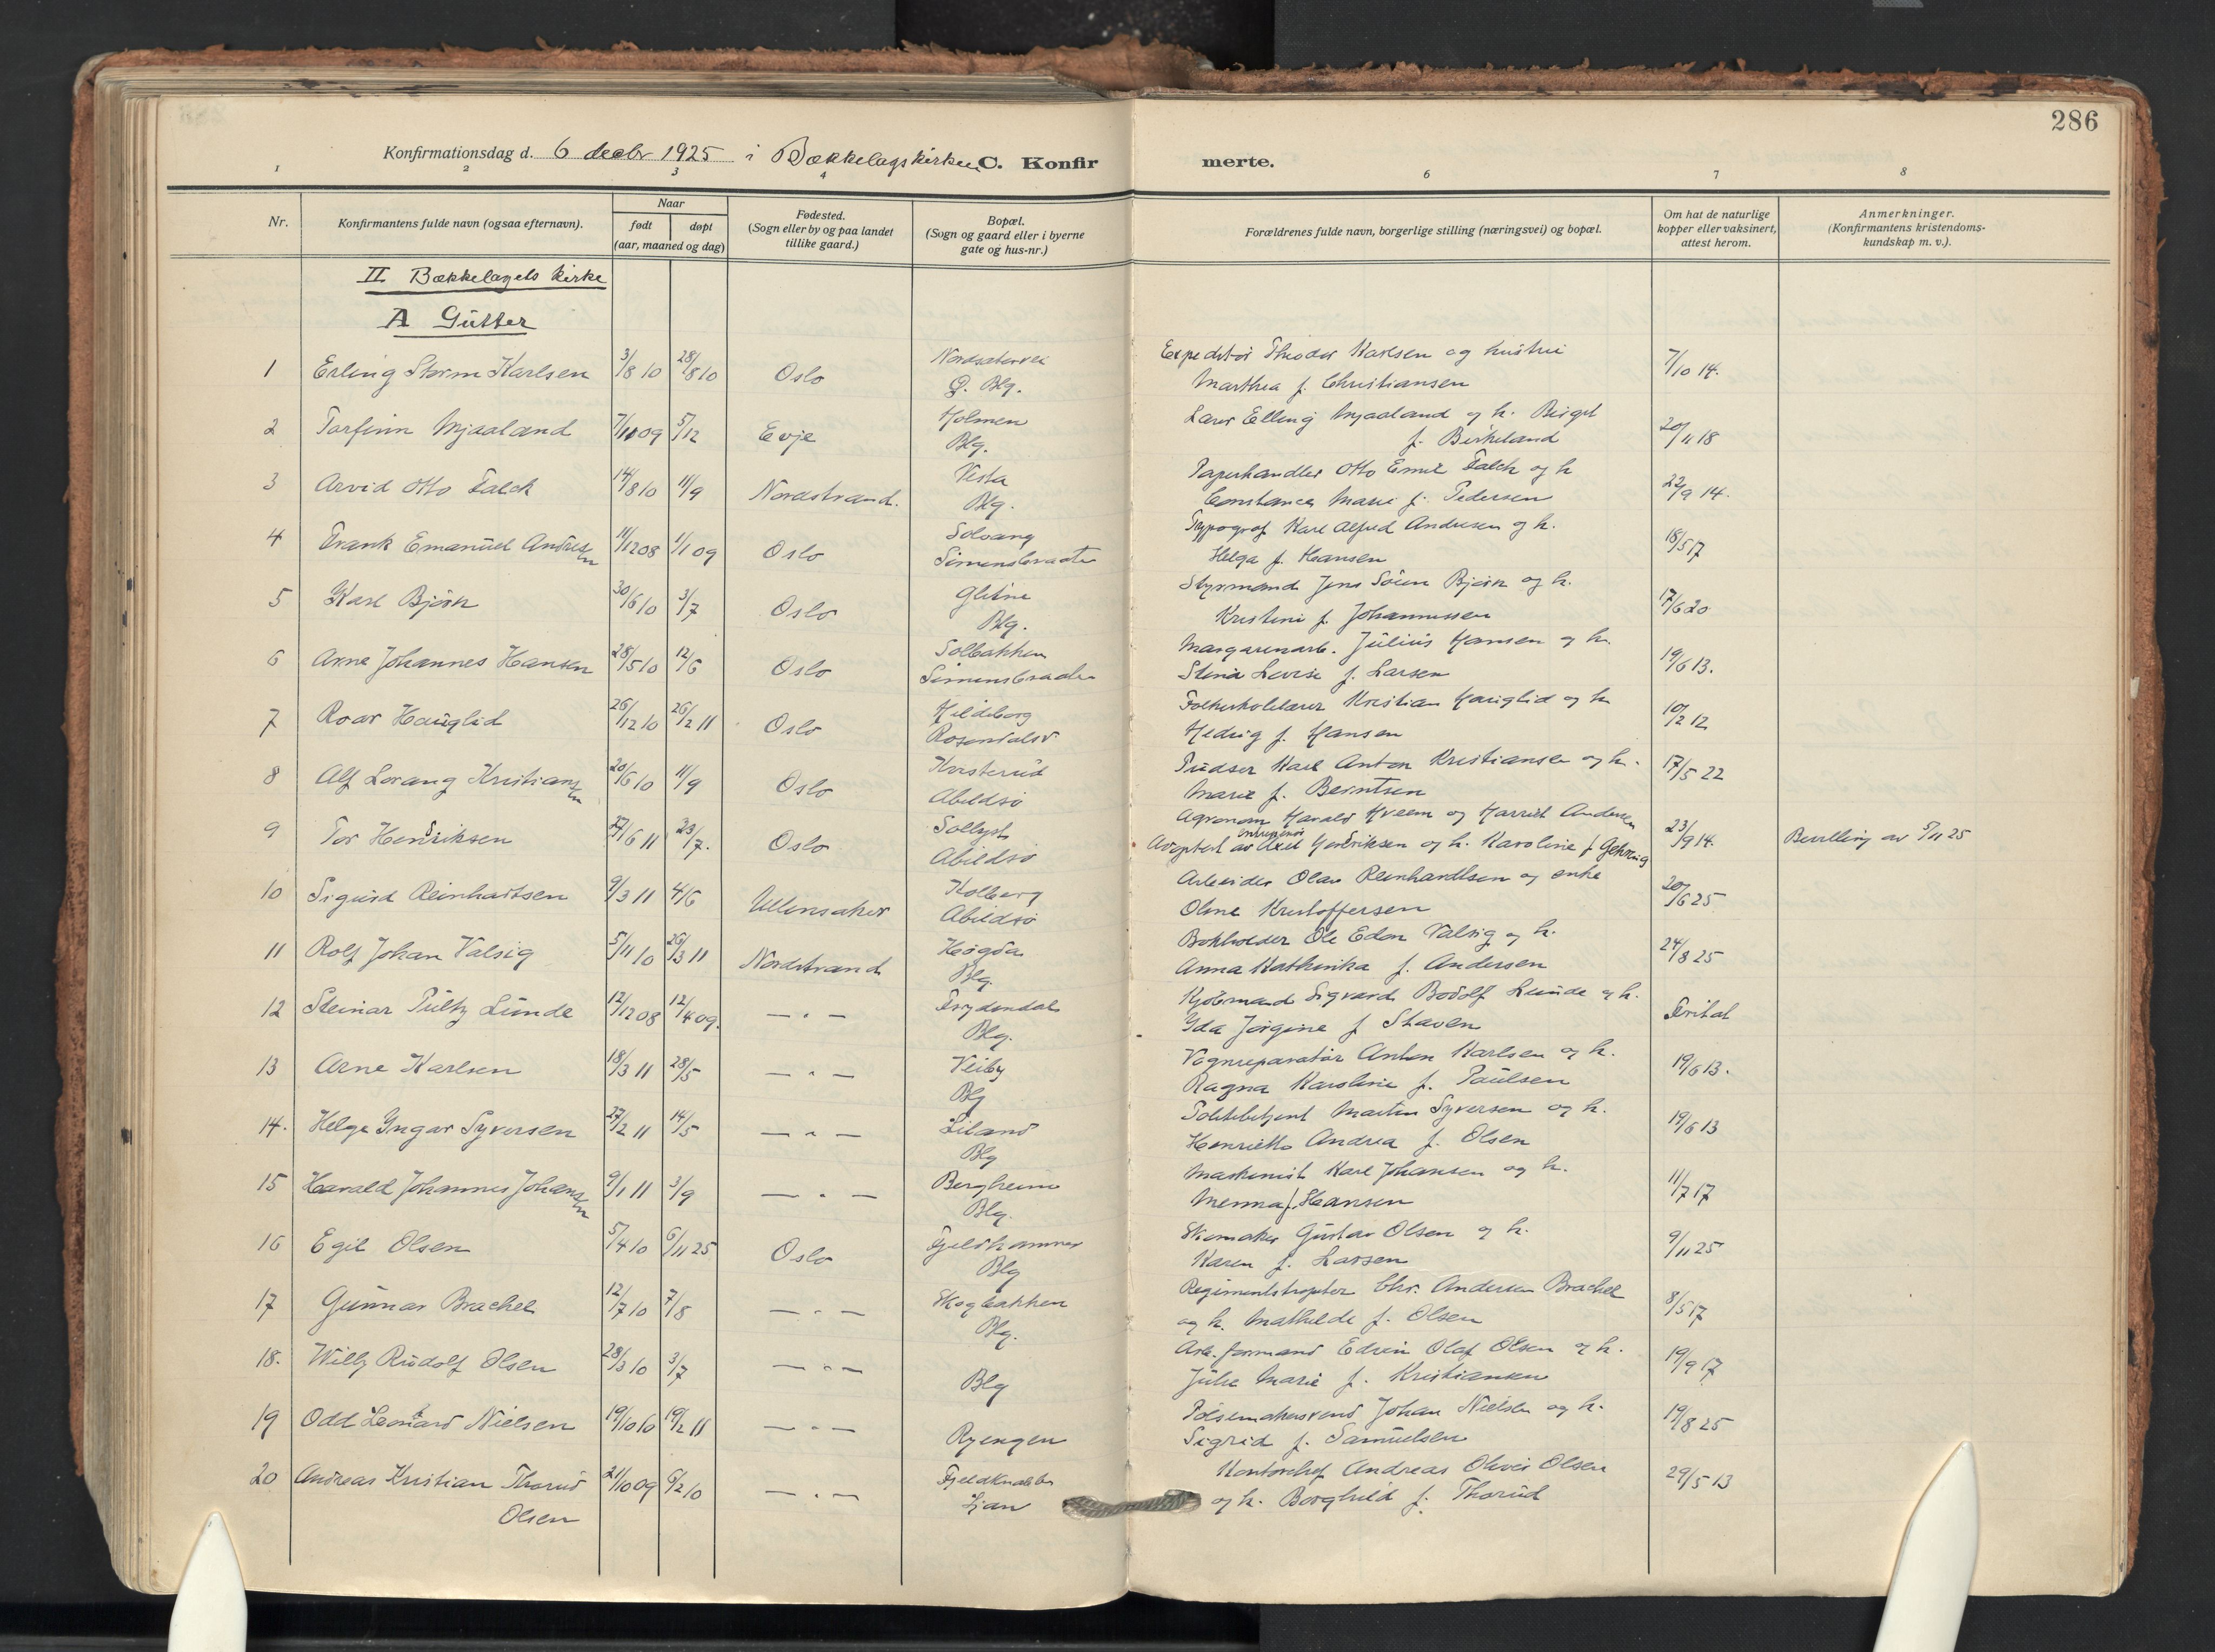 286
Konfirmationsdag d. 6 decbr 1925 i Bækkelagskirken C. Konfirmerte.
1 2 3 4 6 7 8
Nr.
Konfirmantens fulde navn (ogsaa efternavn).
Naar
født døpt
(aar, maaned og dag)
Fødested.
(Sogn eller by og paa landet
tillike gaard.)
Bopæl.
(Sogn og gaard eller i byerne
gate og hus-nr.)
Forældrenes fulde navn, borgerlige stilling (næringsvei) og bopæl.
Om hat de naturlige
kopper eller vaksinert,
attest herom.
Anmerkninger.
(Konfirmantens kristendoms-
kundskap m. v.).
II Bækkelagets kirke
A Gutter
1 Erling Storm Karlsen 3/8 10 28/8 10 Oslo Nordsetervei Blg. Expeditør Theodor Karlsen og hustru 7/10 14.
Marthea f. Christiansen
2 Torfinn Mjaaland 7/11 09 5/12 Evje Holmen Blg. Lærer Elling Mjaaland og h. Birgit 20/11 18
f. Birkeland
3 Arvid Otto Falck 14/8 10 11/9 Nordstrand. Vesta Blg. Papirhandler Otto Emil Falck og h 22/9 14.
Constance Marie f. Pedersen
4 Frank Emanuel Andresen 11/12 08 1/1 09 Oslo Solvang Simensbraaten Typograf Karl Alfred Andresen og h. 18/5 17
Helga f. Hansen
5 Karl Bjørk 30/6 10 3/7 Oslo Glitne Blg. Styrmand Jens Søren Bjørk og h. 17/6 20
Kristine f. Johannessen
6 Arne Johannes Hansen 28/5 10 12/6 Oslo Solbakken Simensbraaten Margarinarb. Julius Hansen og h. 19/6 13.
Stina Lovise f. Larsen
7 Roar Hauglid 26/12 10 26/2 11 Oslo Hildeborg Rosendalsv. Folkeskolelærer Kristian Hauglid og h 10/2 12
Hedvig f. Hansen
8 Alf Lorang Kristiansen 20/6 10 11/9 Oslo Abildsø Pudser Karl Anton Kristiansen og h. 17/5 22
Marie f. Berntsen
9 Tor Hendriksen 27/6 11 23/7. Oslo Sollyst Abildsø Agronom Harald Kveem og Harriet Andersen 23/9 14. Bevilling av 5/11 25
Adoptert av entreprenør Axel Hendriksen og h. Karoline f. Gehring
10 Sigurd Reinhartsen 9/3 11 4/6 Ullensaker Kolberg Abildsø Arbeider Olav Reinhardtsen og enke 20/6 25
Oline Kristoffersen
11 Rolf Johan Valsig 5/11 10 26/3 11 Nordstrand Høgda Blg. Bokholder Ole Edon Valsig og h. 24/8 25
Anna Kathinka f. Andersen
12 Steinar Pultz Lunde 12/12 08 12/4 09. — " — Frydendal Blg. Kjøbmand Sigvard Bodolf Lunde og h. Fritat
Yda Jørgine f. Staven
13 Arne Karlsen 18/3 11 28/5 — " — Veiby Blg Vognreparatør Anton Karlsen og h. 19/6 13.
Ragna Karoline f. Paulsen
14. Helge Yngar Syversen 27/2 11 14/5 — " — Liland Blg Politibetjent Martin Syversen og h. 19/6 13
Henriette Andrea f. Olsen
15 Harald Johannes Johansen 9/1 11 3/9 — " — Bergheim Blg. Maskinist Karl Johansen og h. 11/7 17
Menna f. Hansen
16 Egil Olsen 5/4 10 6/11 25 Oslo Fjeldhammer Blg Skomaker Gustav Olsen og h. 9/11 25
Karen f. Larsen
17 Gunnar Brachel 12/7 10 7/8 — " — Skogbakken Blg. Regimentstrompeter Chr. Andersen Brachel 8/5 17
og h. Mathilde f. Olsen
18. Willy Rudolf Olsen 28/3 10 3/7 — " — Blg Arb. formand Edvin Olaf Olsen og h. 19/9 17
Julie Marie f. Kristiansen
19 Odd Leonard Nielsen 19/10 10 19/2 11 — " — Ryengen Pølsemakersvend Johan Nielsen og h. 19/8 25
Sigrid f. Samuelsen
20 Andreas Kristian Thorud 21/10 09 6/2 10 — " — Fjeldknabben Ljan Kontorchef Andreas Oliver Olsen 29/5 13
Olsen og h. Borghild f. Thorud